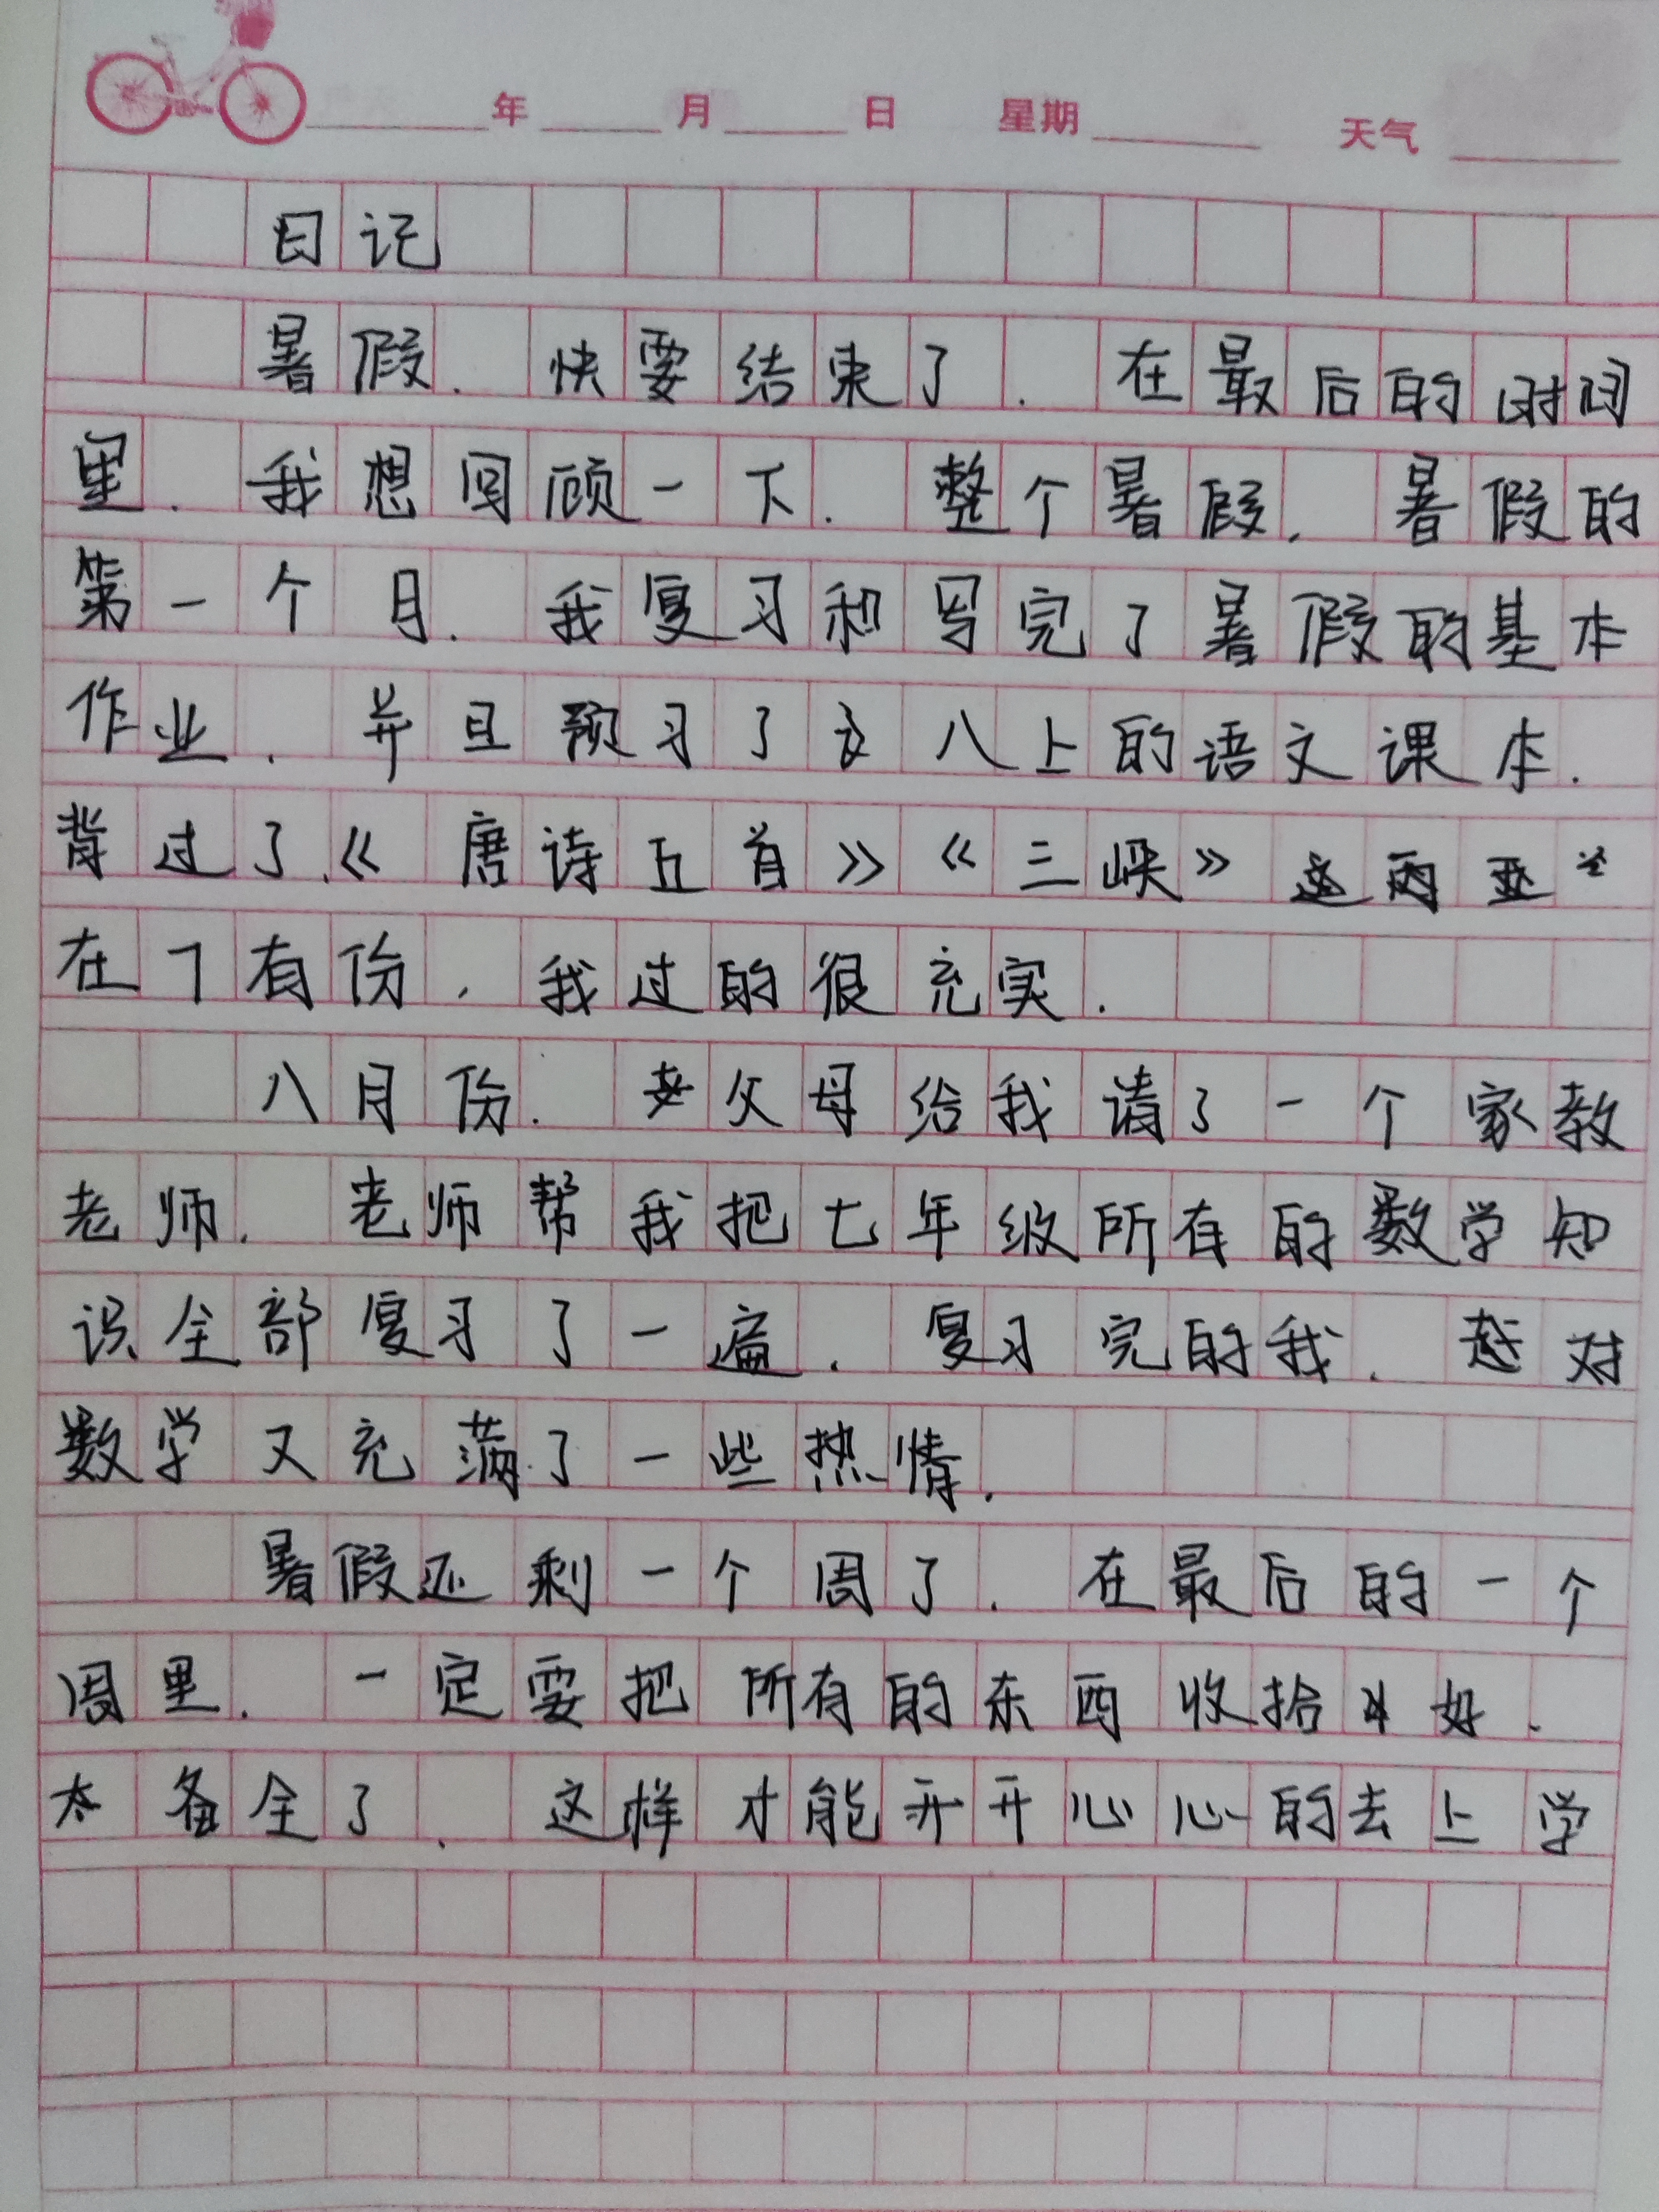 年 月 日 星期 天气
日记
暑假.快要结束了.在最后的时间
里.我想回顾一下.整个暑假.暑假的
第一个月.我复习和写完了暑假的基本
作业.并且预习了八上的语文课本.
背过了《唐诗五首》《三峡》
在7有份,我过的很充实.
八月份.父母给我请了一个家教
老师.老师帮我把七年级所有的数学知
识全部复习了一遍.复习完的我.对
数学又充满了一些热情.
暑假还剩一个周了.在最后的一个
周里.一定要把所有的东西收拾好.
备全了.这样才能开开心心的去上学